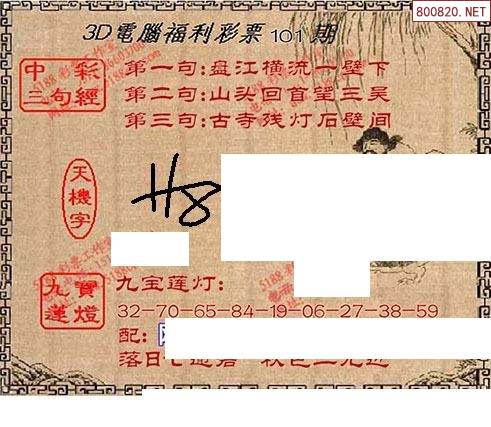 800820.NET
3D電腦福利彩票101期
中彩
三句經
第一句:盘江横流一壁下
第二句:山头回首望三吴
第三句:古寺残灯石壁间
天機字
H8
九寶
蓮燈
九宝莲灯:
32-70-65-84-19-06-27-38-59
配:
落日